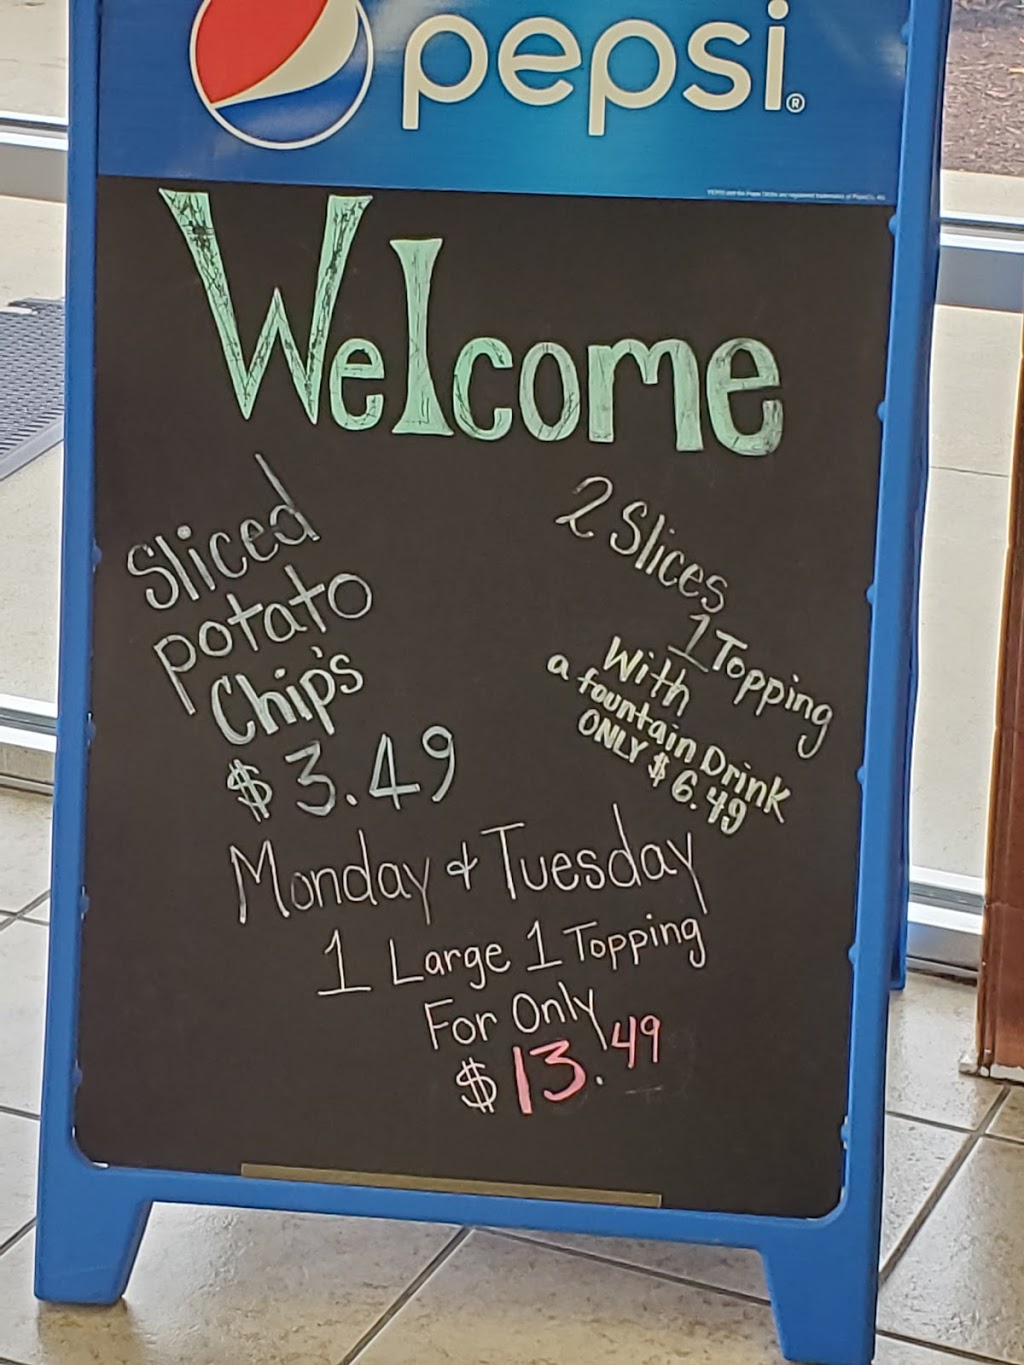 pepsi®
Welcome
Sliced
potato
Chip's
$3.49
2 Slices
1 Topping
With
a fountain Drink
ONLY $6.49
Monday & Tuesday
1 Large 1 Topping
For Only
$13.49